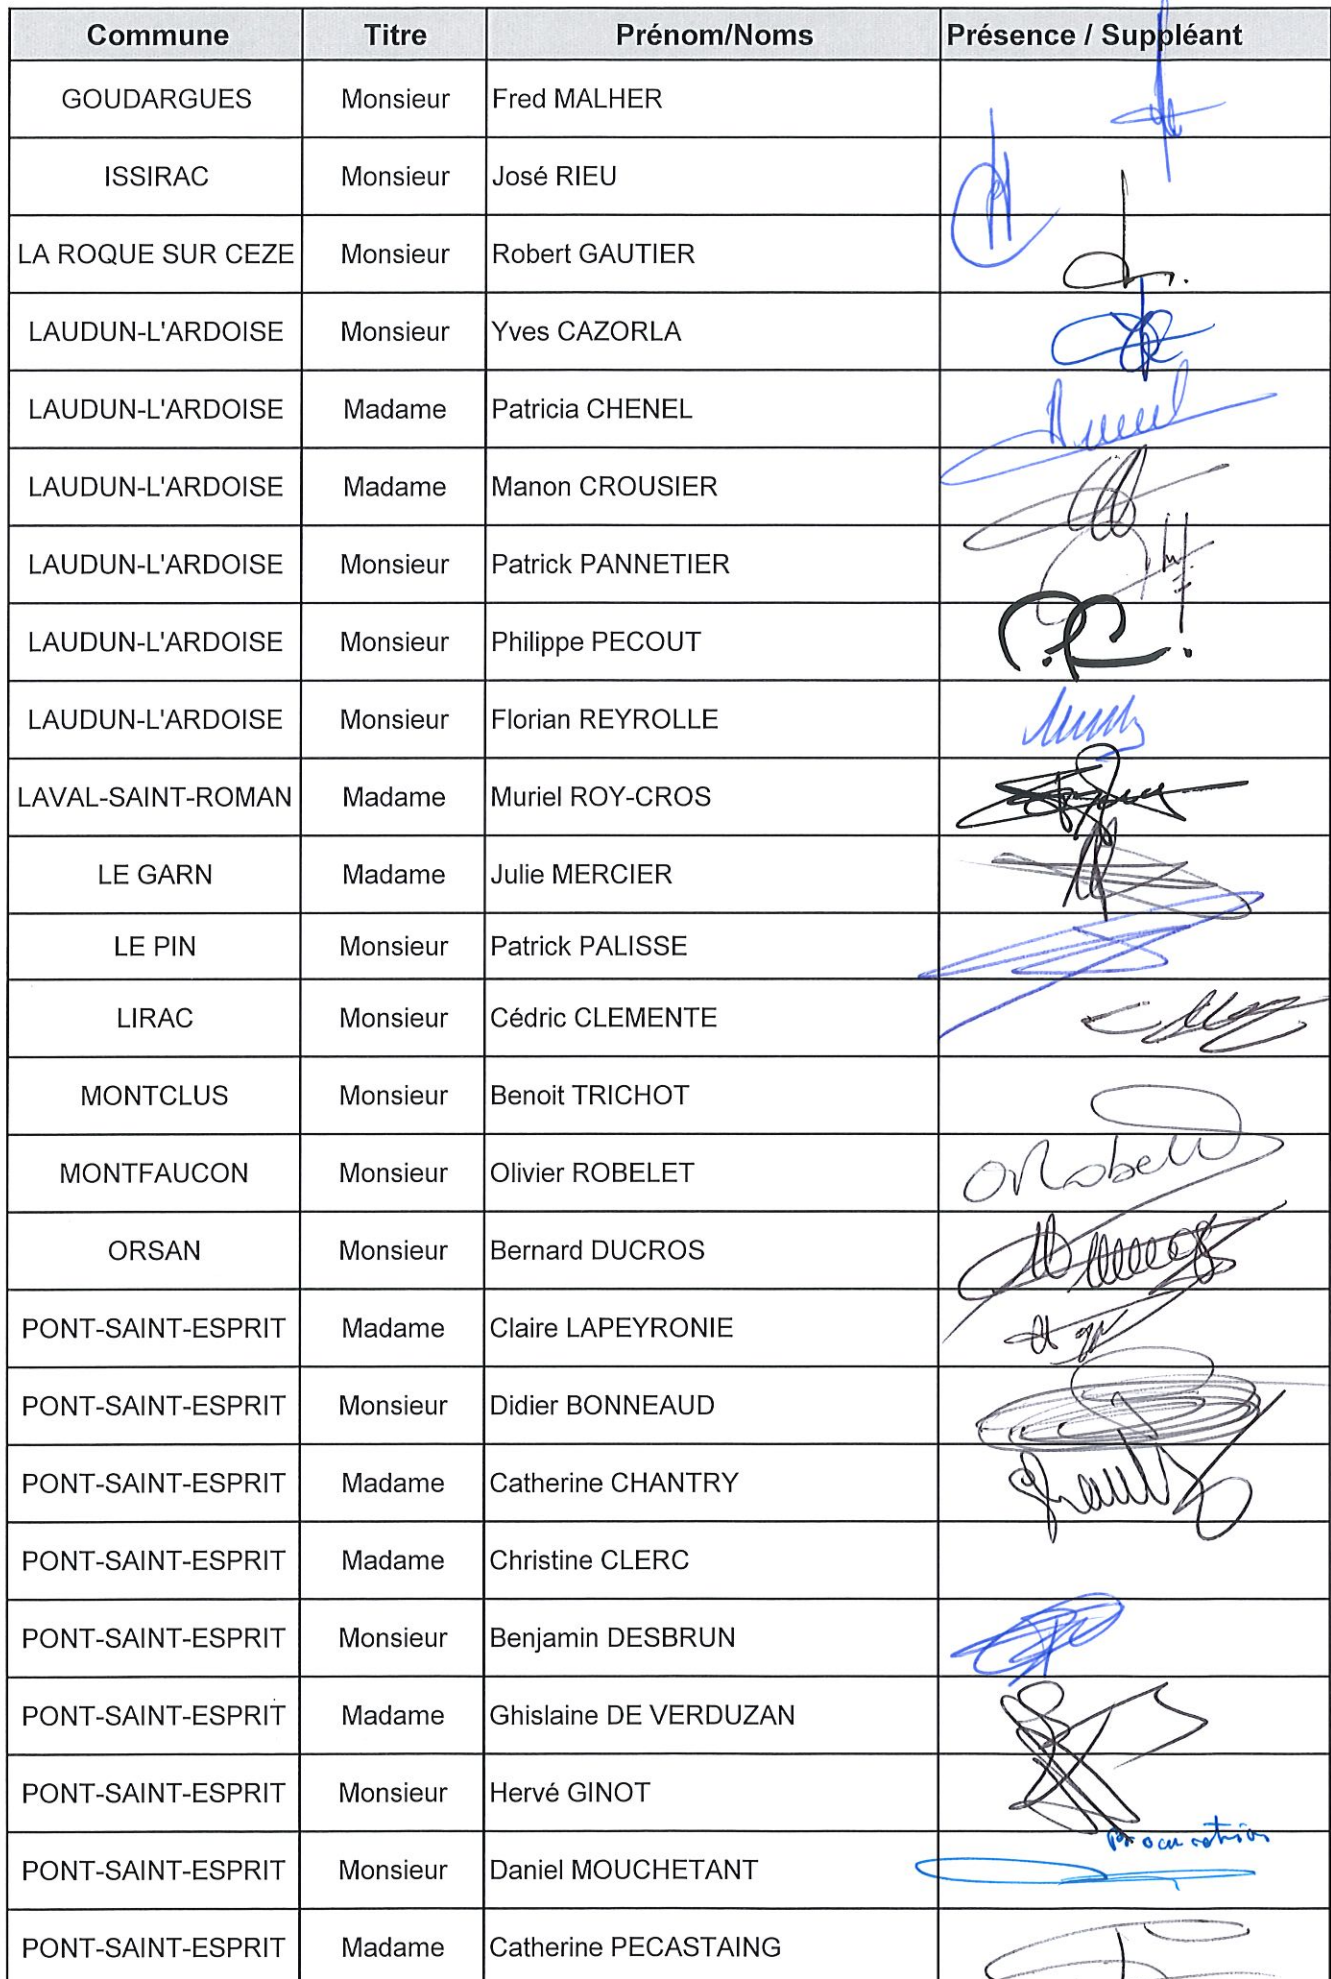 Commune Titre Prénom/Noms Présence / Suppléant
GOUDARGUES Monsieur Fred MALHER
ISSIRAC Monsieur José RIEU
LA ROQUE SUR CEZE Monsieur Robert GAUTIER
LAUDUN-L'ARDOISE Monsieur Yves CAZORLA
LAUDUN-L'ARDOISE Madame Patricia CHENEL
LAUDUN-L'ARDOISE Madame Manon CROUSIER
LAUDUN-L'ARDOISE Monsieur Patrick PANNETIER
LAUDUN-L'ARDOISE Monsieur Philippe PECOUT
LAUDUN-L'ARDOISE Monsieur Florian REYROLLE
LAVAL-SAINT-ROMAN Madame Muriel ROY-CROS
LE GARN Madame Julie MERCIER
LE PIN Monsieur Patrick PALISSE
LIRAC Monsieur Cédric CLEMENTE
MONTCLUS Monsieur Benoit TRICHOT
MONTFAUCON Monsieur Olivier ROBELET
ORSAN Monsieur Bernard DUCROS
PONT-SAINT-ESPRIT Madame Claire LAPEYRONIE
PONT-SAINT-ESPRIT Monsieur Didier BONNEAUD
PONT-SAINT-ESPRIT Madame Catherine CHANTRY
PONT-SAINT-ESPRIT Madame Christine CLERC
PONT-SAINT-ESPRIT Monsieur Benjamin DESBRUN
PONT-SAINT-ESPRIT Madame Ghislaine DE VERDUZAN
PONT-SAINT-ESPRIT Monsieur Hervé GINOT
PONT-SAINT-ESPRIT Monsieur Daniel MOUCHETANT procuration
PONT-SAINT-ESPRIT Madame Catherine PECASTAING